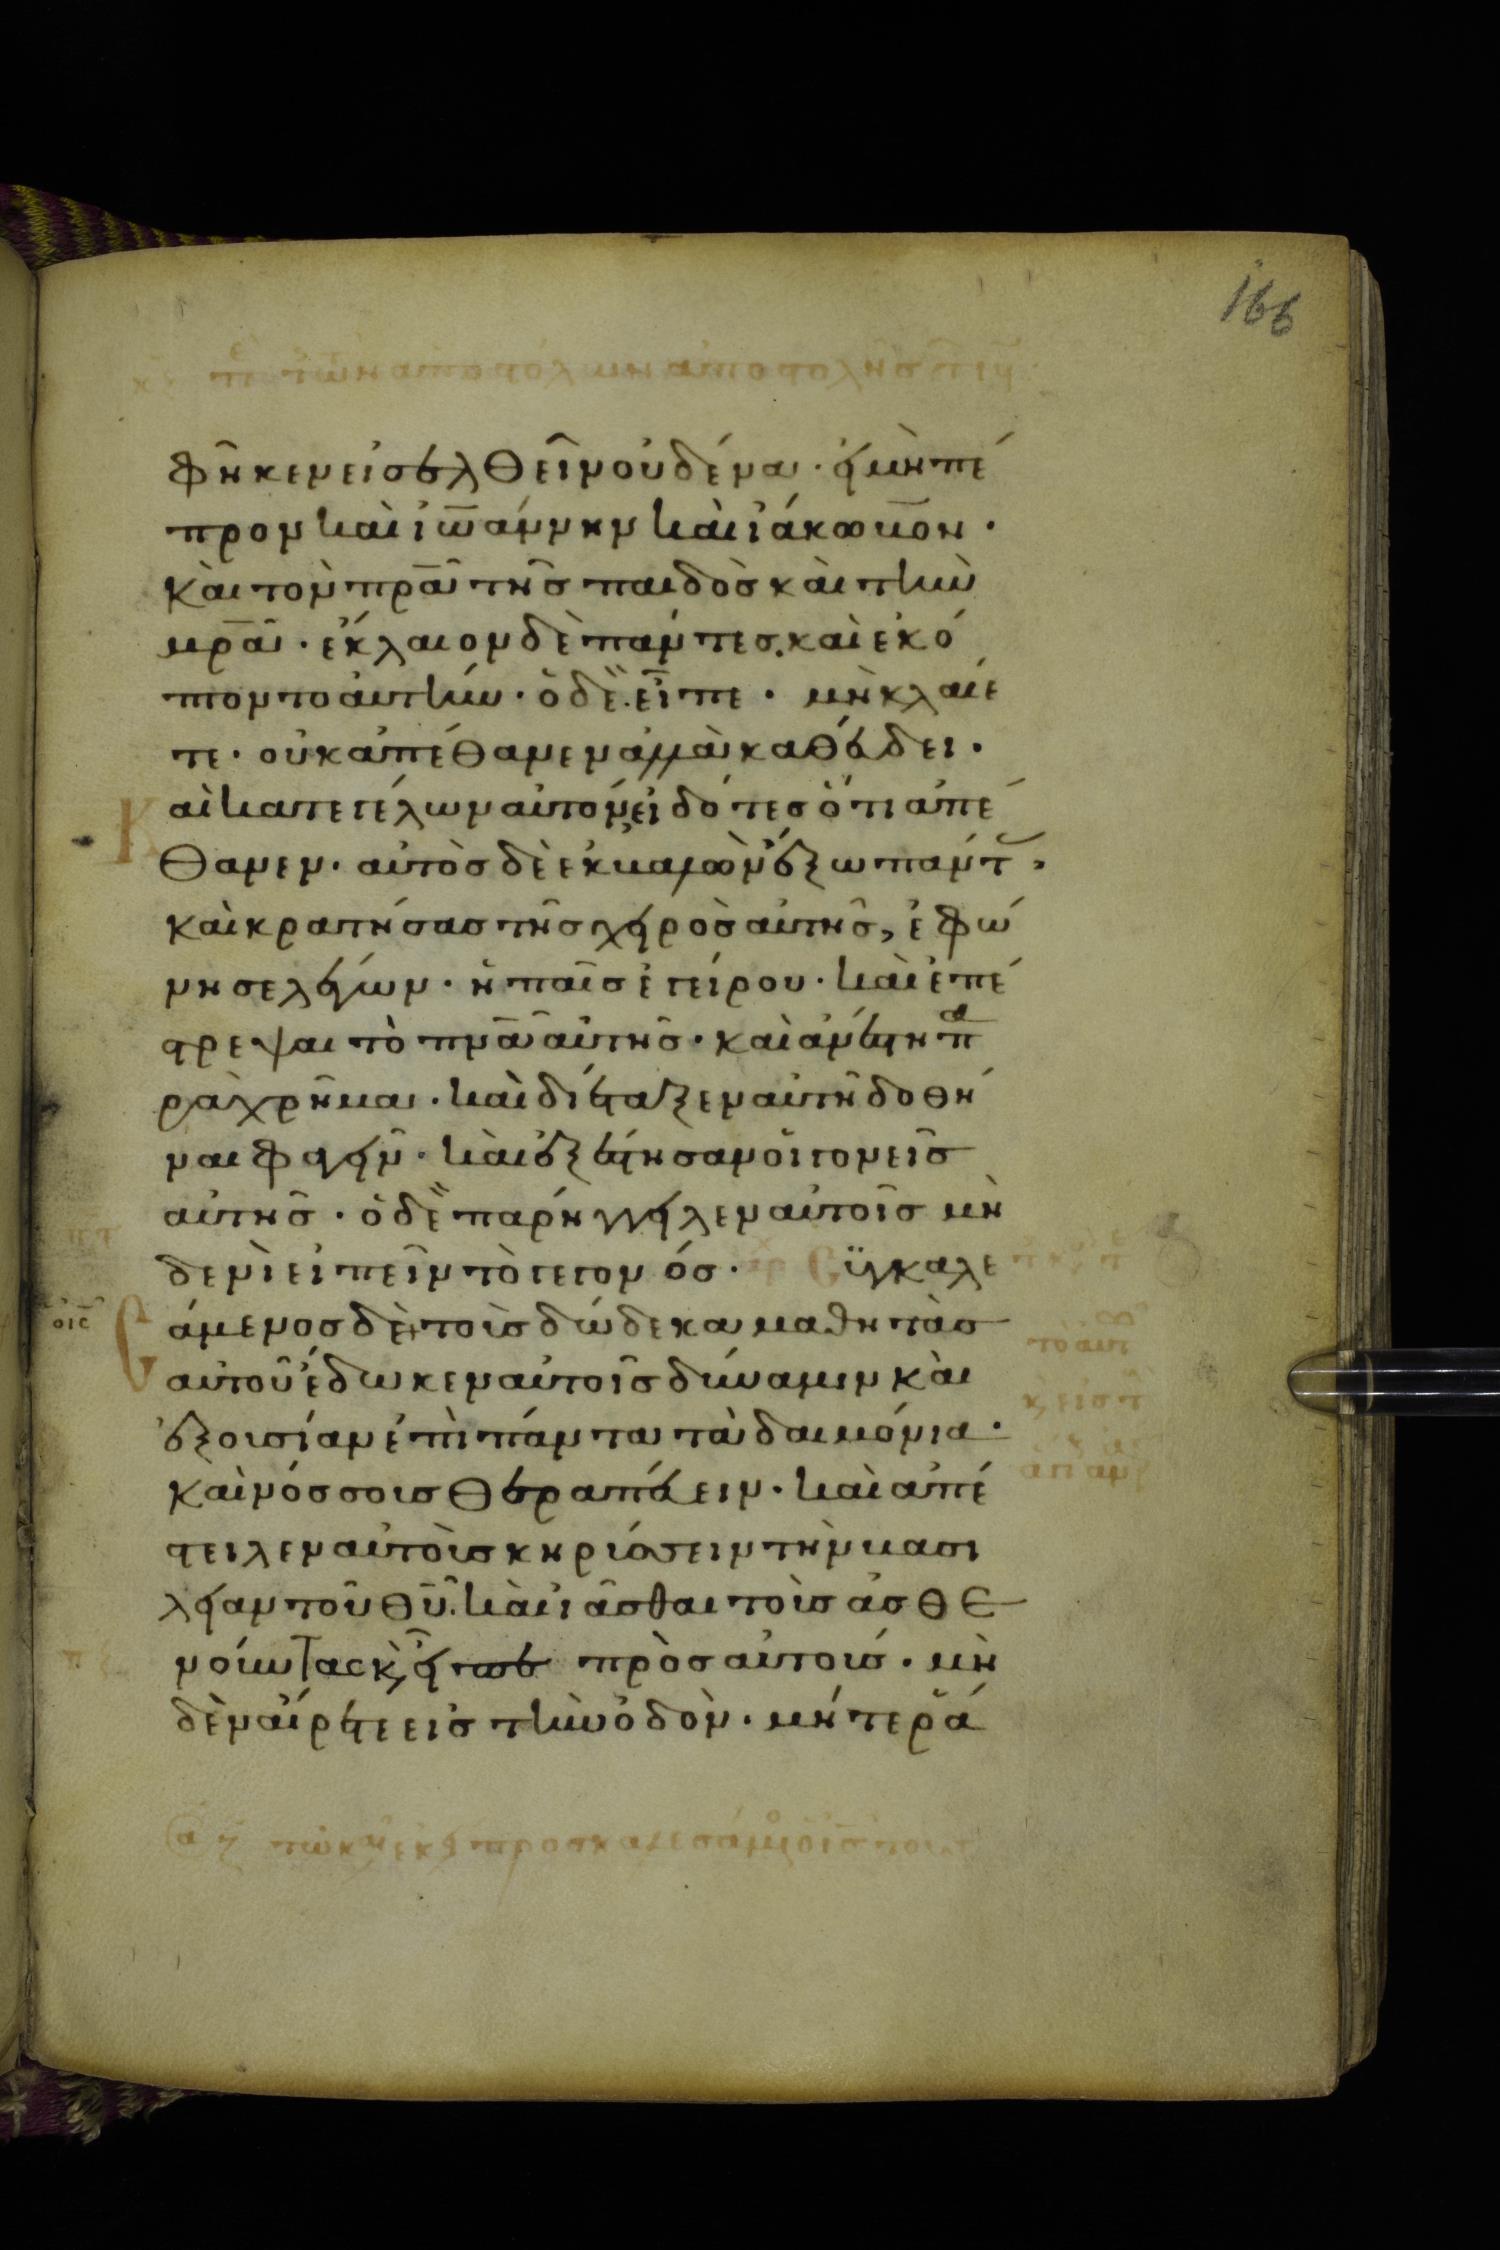 166
φῆκεν εἰσελθεῖν οὐδένα · εἰ μὴ πέ
τρον καὶ ἰω̅άννην καὶ ἰάκωβον ·
καὶ τὸν πρ̅α τῆς παιδὸς καὶ τὴν
μρ̅α · ἔκλαιον δὲ πάντες, καὶ ἐκό
πτοντο αὐτήν · ὁ δὲ εἶπε · μὴ κλαίε
τε · οὐκ ἀπέθανεν ἀλλὰ καθεύδει ·
Καὶ κατεγέλων αὐτοῦ, εἰδότες ὅτι ἀπέ
θανεν · αὐτὸς δὲ ἐκβαλὼν ἔξω πάντ ,
καὶ κρατήσας τῆς χειρὸς αὐτῆς, ἐφώ
νησε λέγων · ἡ παῖς ἐγείρου · καὶ ἐπέ
στρεψε τὸ πν̅α αὐτῆς · καὶ ἀνέστη π
ραχρῆμα · καὶ διέταξεν αὐτῇ δοθῆ
ναι φαγεῖν · καὶ ἐξέστησαν οἱ γονεῖς
αὐτῆς · ὁ δὲ παρήγγειλεν αὐτοῖς μη
δενὶ εἰπεῖν τὸ γεγονός · Συγκαλε
σάμενος δὲ τοὺς δώδεκα μαθητὰς
αὐτοῦ ἔδωκεν αὐτοῖς δύναμιν καὶ
ἐξουσίαν ἐπὶ πάντα τὰ δαιμόνια ·
καὶ νόσσους θεραπεύειν · καὶ ἀπέ
στειλεν αὐτοὺς κηρύσσειν τὴν βασι
λείαν τοῦ θ̅υ̅. καὶ ἰᾶσθαι τοὺς ἀσθε
νοῦντας κ̀ εἶπε πρὸς αὐτούς · μη
δὲν αἴρετε εἰς τὴν ὁδόν · μήτε ῥά